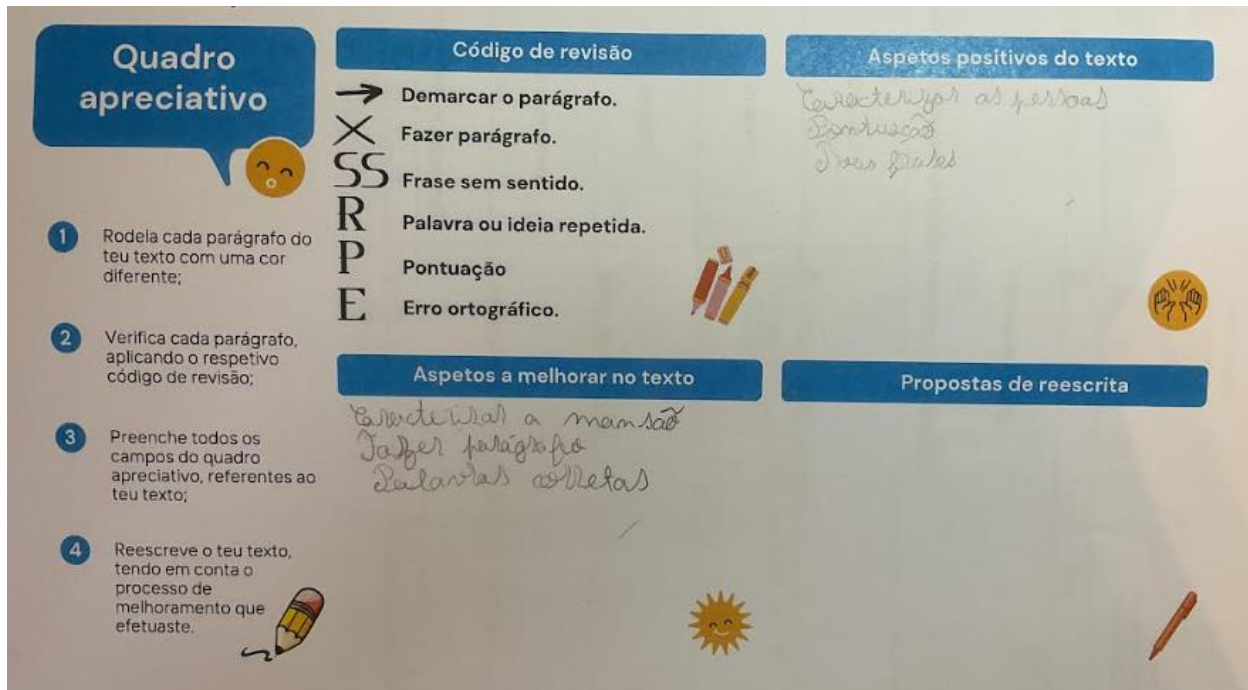 Quadro
apreciativo
1
Rodela cada parágrafo do
teu texto com uma cor
diferente;
2
Verifica cada parágrafo,
aplicando o respetivo
código de revisão;
3
Preenche todos os
campos do quadro
apreciativo, referentes ao
teu texto;
4
Reescreve o teu texto,
tendo em conta o
processo de
melhoramento que
efetuaste.
Código de revisão
Demarcar o parágrafo.
Fazer parágrafo.
SS Frase sem sentido.
R Palavra ou ideia repetida.
P Pontuação
E Erro ortográfico.
Aspetos positivos do texto
Caracterizar as pessoas
Pontuação
frases
Aspetos a melhorar no texto
Caracterizar a mansão
Fazer parágrafo
Palavras corretas
Propostas de reescrita